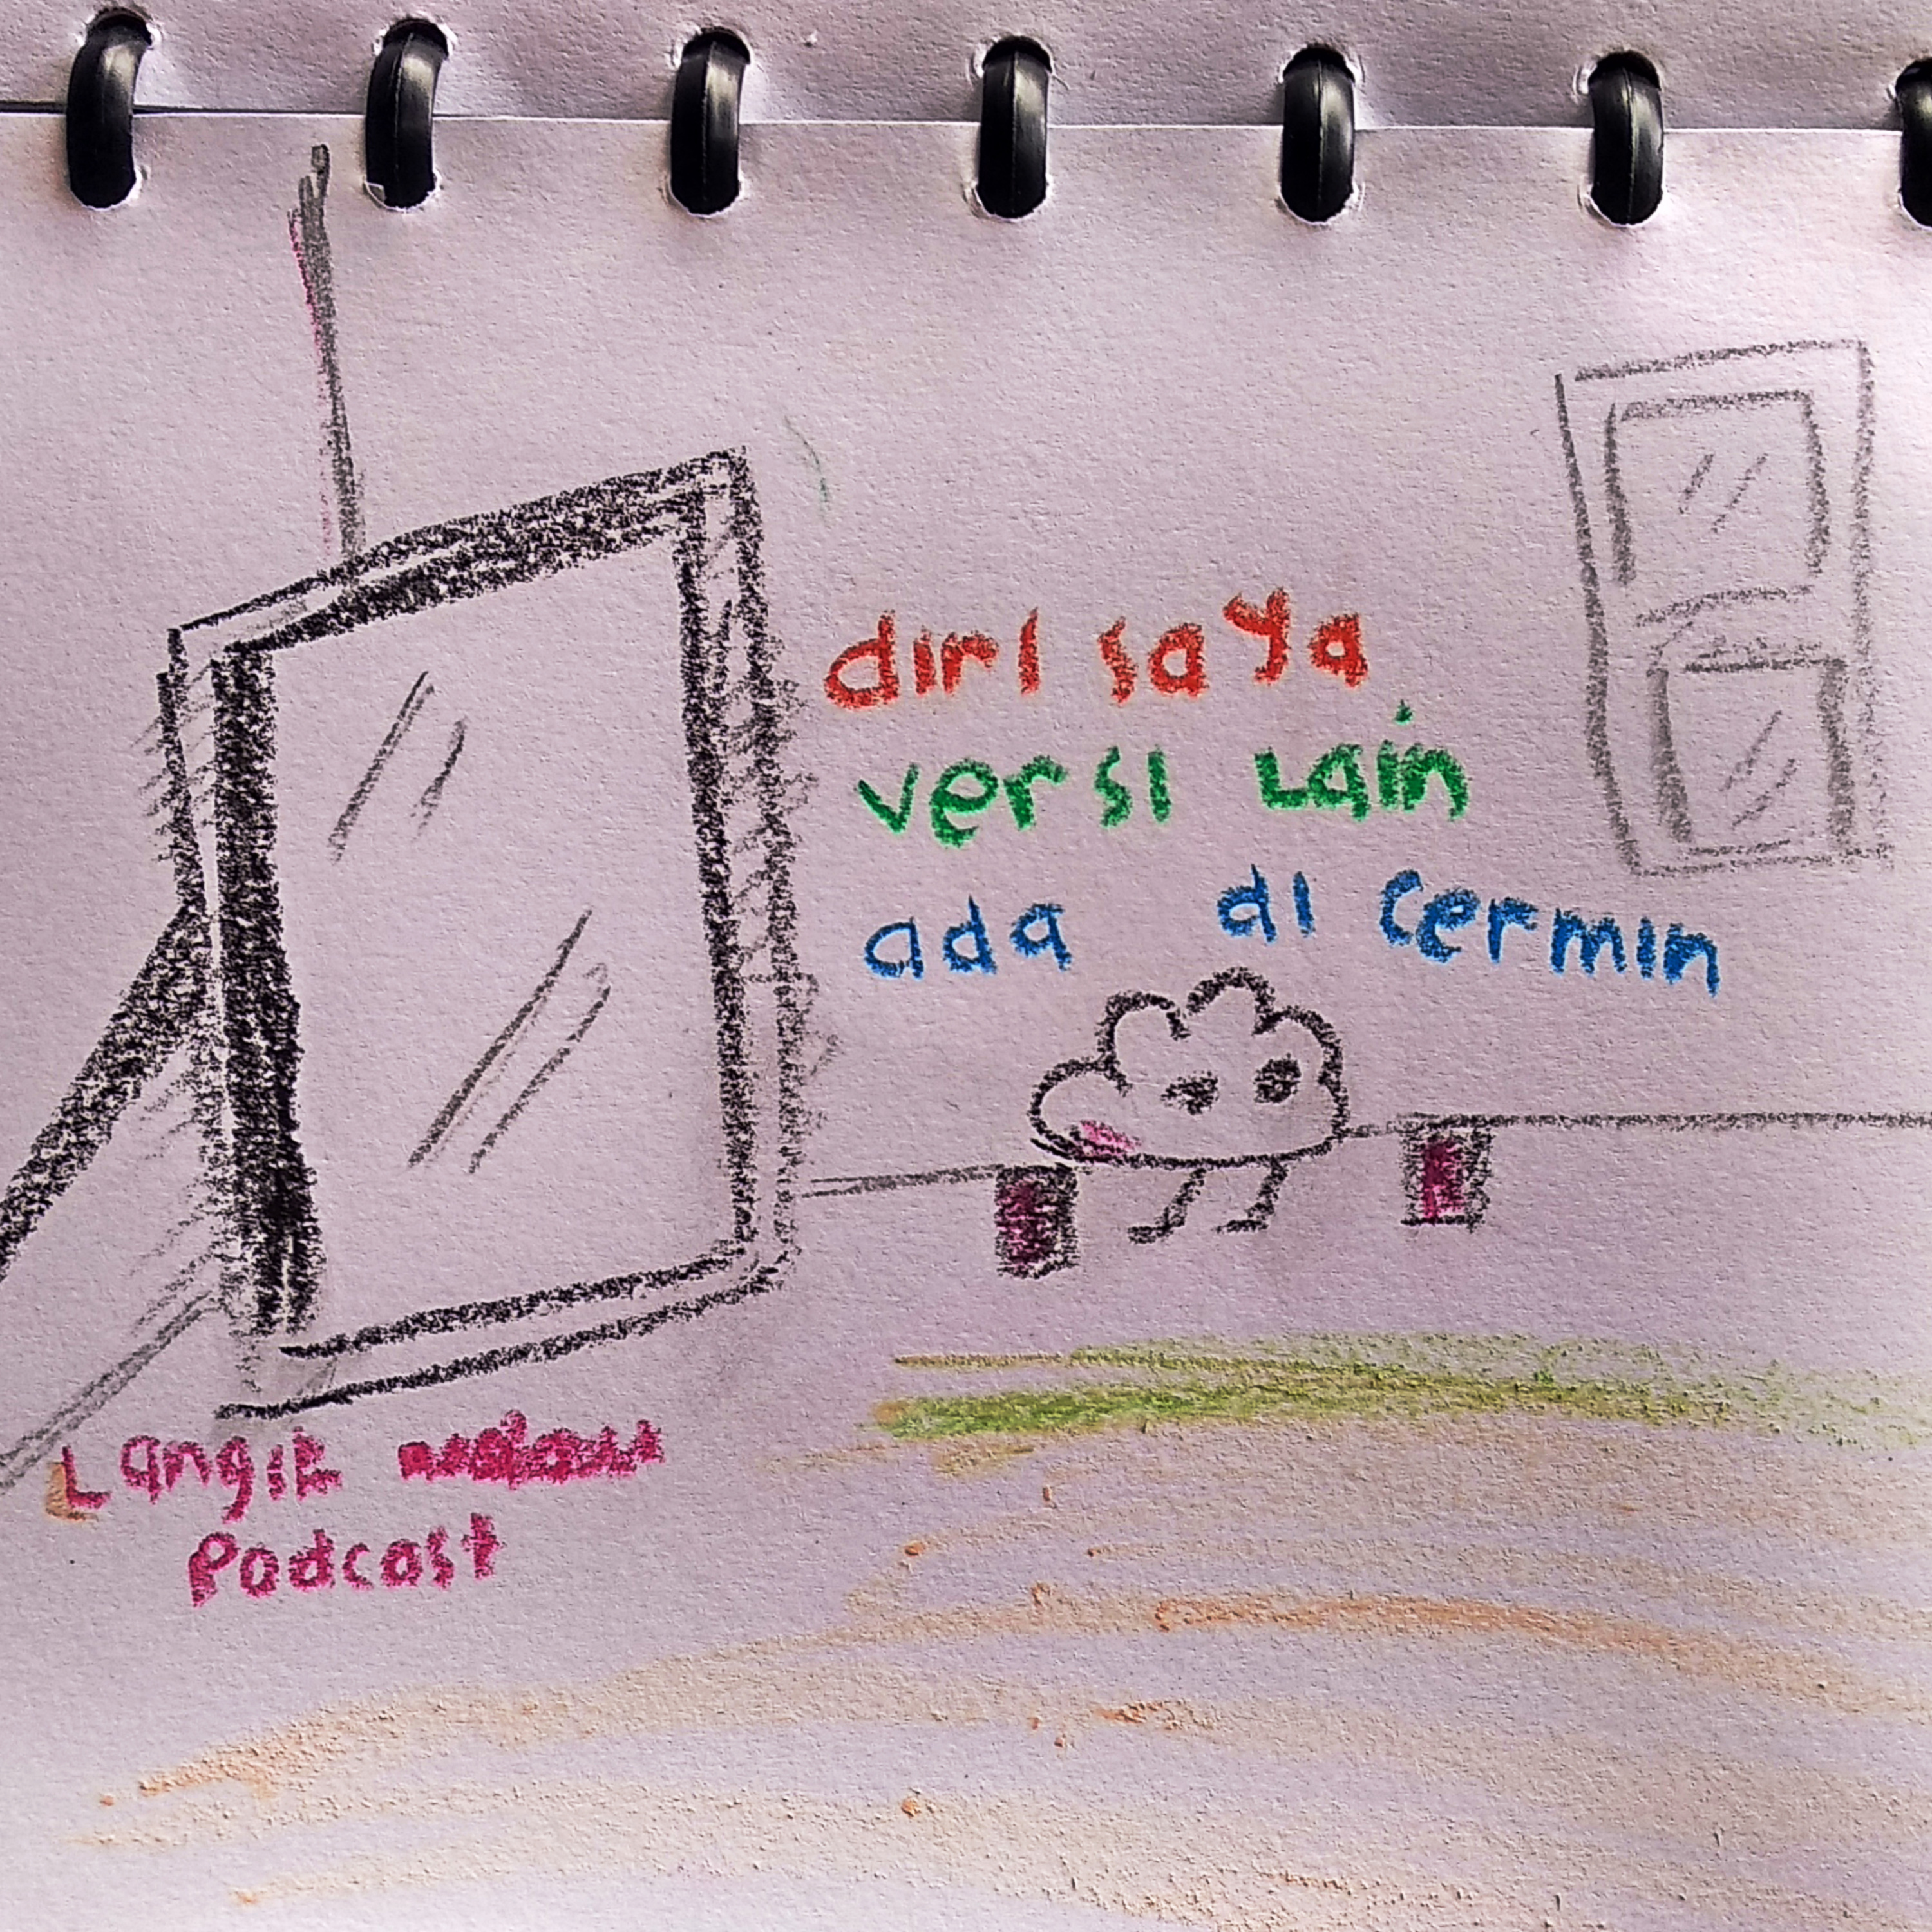 diri saya
versi Lain
ada di cermin
Langit
Podcast